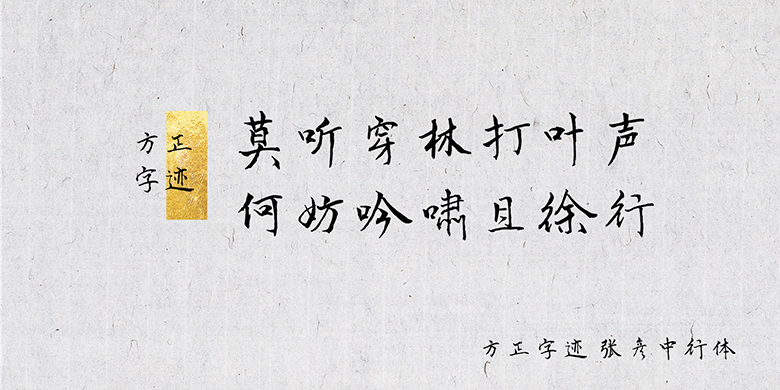 方正
字迹
莫听穿林打叶声
何妨吟啸且徐行
方正字迹张彦中行体